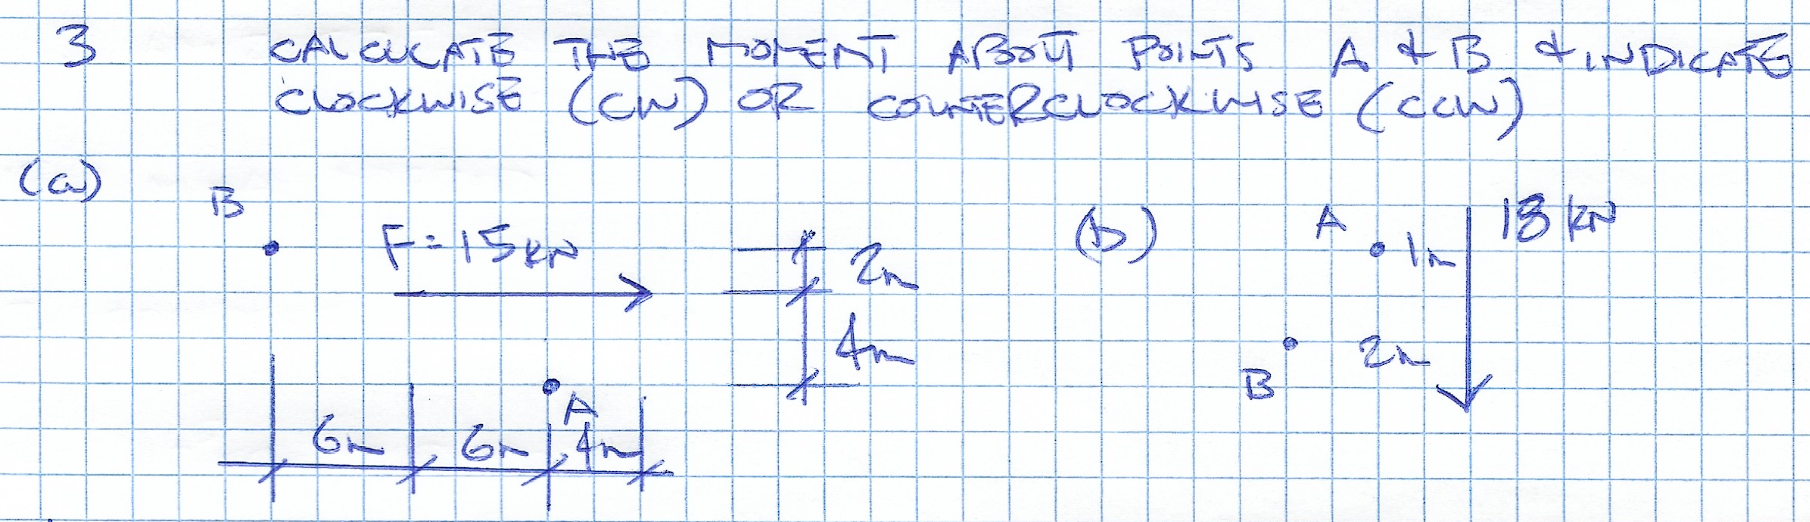 3 CALCULATE THE MOMENT ABOUT POINTS A & B & INDICATE
CLOCKWISE (CW) OR COUNTERCLOCKWISE (CCW)
(a)
B
F = 15 kN
2m
4m
A
6m 6m 4m
(b)
A
1m
18 kN
B
2m